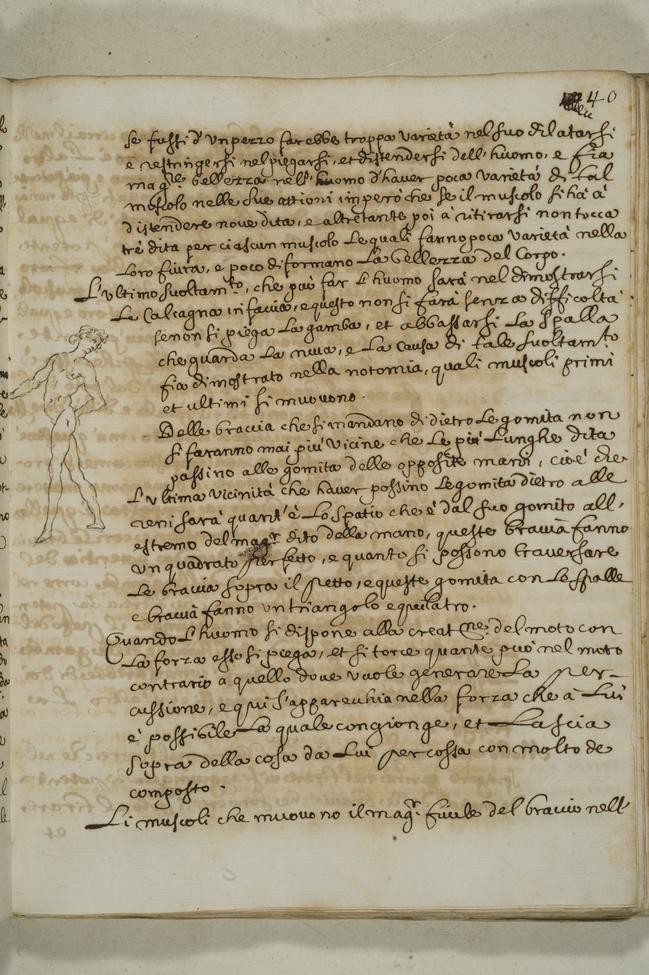 40
se fussi d'un pezzo farebbe troppa varietà nel suo dilatarsi
e restringersi nel piegarsi, et distendersi dell'huomo, e fia
mag.re bellezza nell'huomo d'haver poca varietà di tal
muscolo nelle sue attioni imperò che se il muscolo si hà à
distendere nove dita, e altretante poi à ritirarsi non tocca
trè dita per ciascun muscolo le quali fanno poca varietà nella
loro fiura, e poco diformano la bellezza del Corpo.
L'ultimo suoltam.to, che può far l'huomo sarà nel dimostrarsi
le Calcagna in faccia, e questo non si farà senza difficoltà
se non si piega la gamba, et abbassarsi la spalla
che guarda la nuca, e la causa di tale suoltam.to
fia dimostrato nella notomia, quali muscoli primi
et ultimi si muovono.
Delle braccia che si mandano di dietro le gomita non
si faranno mai più vicine che le più lunghe dita
passino alle gomita delle opposite mani, cioè che
l'ultima vicinità che haver possino le gomita dietro alle
reni sarà quant'è lo spatio che è dal suo gomito all'
estremo del mag.r dito della mano, queste braccia fanno
un quadrato perfetto, e quanto si possono traversare
le braccia sopra il petto, e queste gomita con le spalle
e braccia fanno un triangolo equilatro.
Quando l'huomo si dispone alla creat.ne del moto con
la forza esso si piega, et si torce quanto può nel moto
contrario a quello dove vuole generare la per-
cussione, e qui s'apparecchia nella forza che à lui
è possibile la quale congionge, et lascia
sopra della cosa da lui percossa con molto de
composto.
Li muscoli che muovono il mag.r fucile del braccio nell'